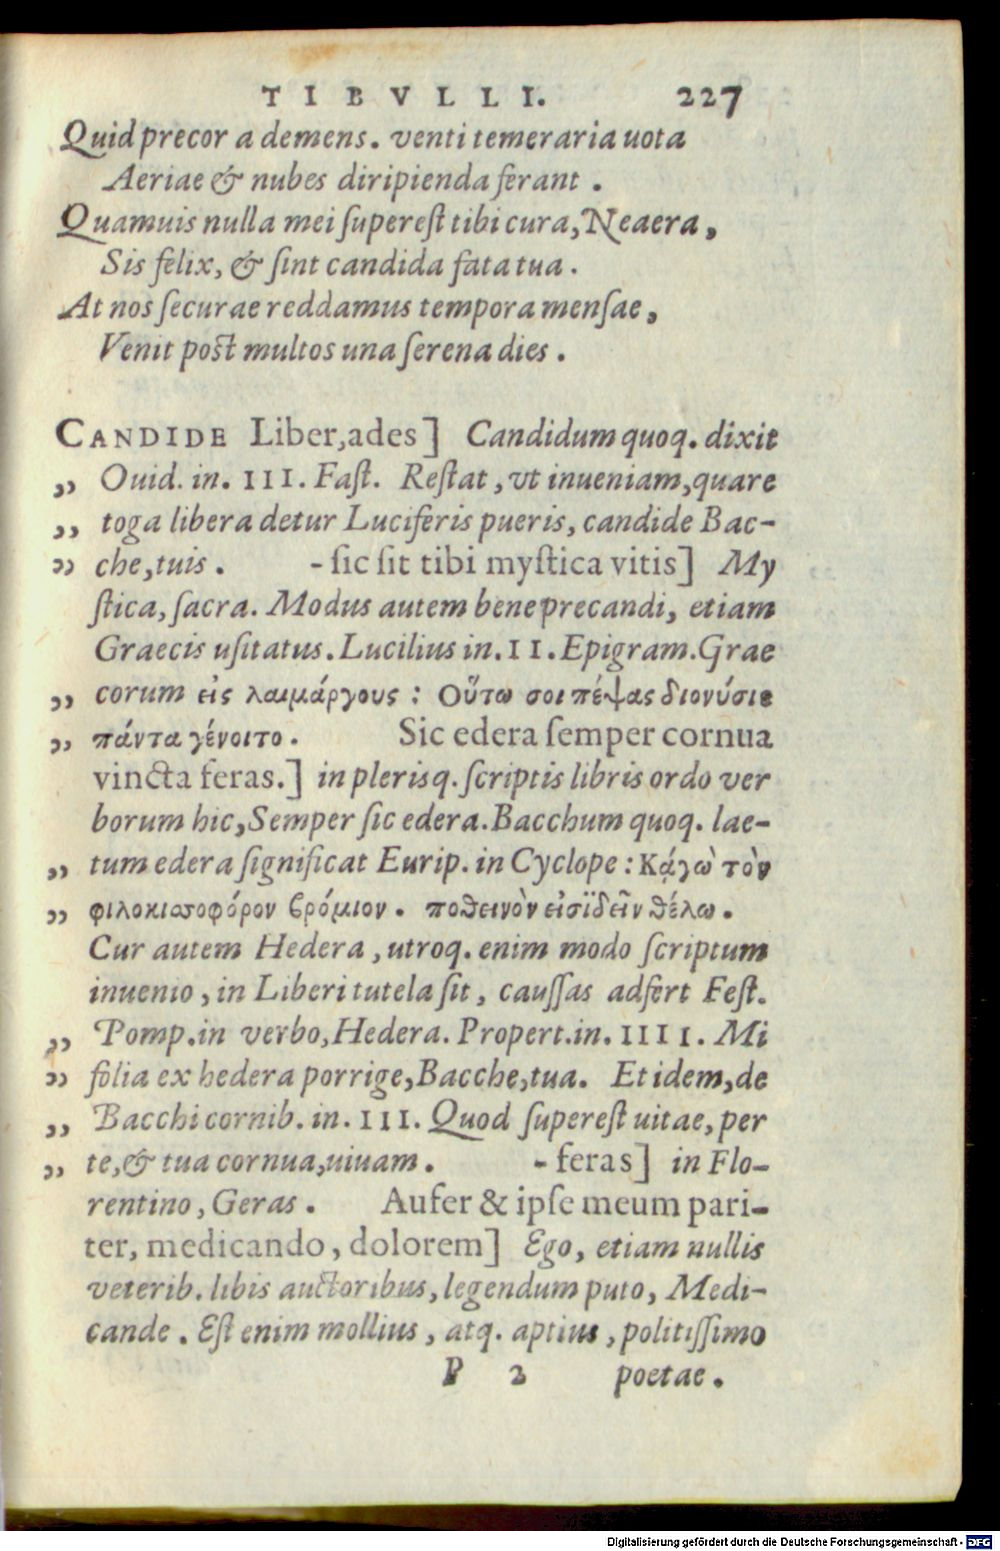 TIBVLLI. 227
Quid precor a demens. venti temeraria uota
Aeriae & nubes diripienda ferant .
Quamuis nulla mei superest tibi cura, Neaera,
Sis felix, & sint candida fata tua .
At nos securae reddamus tempora mensae,
Venit post multos una serena dies .
CANDIDE Liber,ades] Candidum quoq. dixit
„ Ouid. in. III. Fast. Restat, vt inueniam,quare
„ toga libera detur Luciferis pueris, candide Bac-
„ che,tuis . - sic sit tibi mystica vitis] My
stica, sacra. Modus autem bene precandi, etiam
Graecis usitatus. Lucilius in. II. Epigram. Grae
„ corum εἰς λαιμάργους : Οὕτω σοι πέψας διονύσιε
„ πάντα γένοιτο . Sic edera semper cornua
vincta feras.] in plerisq. scriptis libris ordo ver
borum hic, Semper sic edera. Bacchum quoq. lae-
„ tum edera significat Eurip. in Cyclope : Κἀγὼ τὸν
„ φιλοκισσοφόρον βρόμιον . ποθεινὸν εἰσϊδεῖν θέλω .
Cur autem Hedera, utroq. enim modo scriptum
inuenio, in Liberi tutela sit, caussas adfert Fest.
„ Pomp. in verbo, Hedera. Propert. in. IIII. Mi
„ folia ex hedera porrige, Bacche, tua. Et idem, de
„ Bacchi cornib. in. III. Quod superest uitae, per
„ te, & tua cornua, uiuam . - feras] in Flo-
rentino, Geras . Aufer & ipse meum pari-
ter, medicando, dolorem] Ego, etiam nullis
veterib. libis auctoribus, legendum puto, Medi-
cande . Est enim mollius, atq. aptius, politissimo
P 2 poetae .
Digitalisierung gefördert durch die Deutsche Forschungsgemeinschaft - DFG